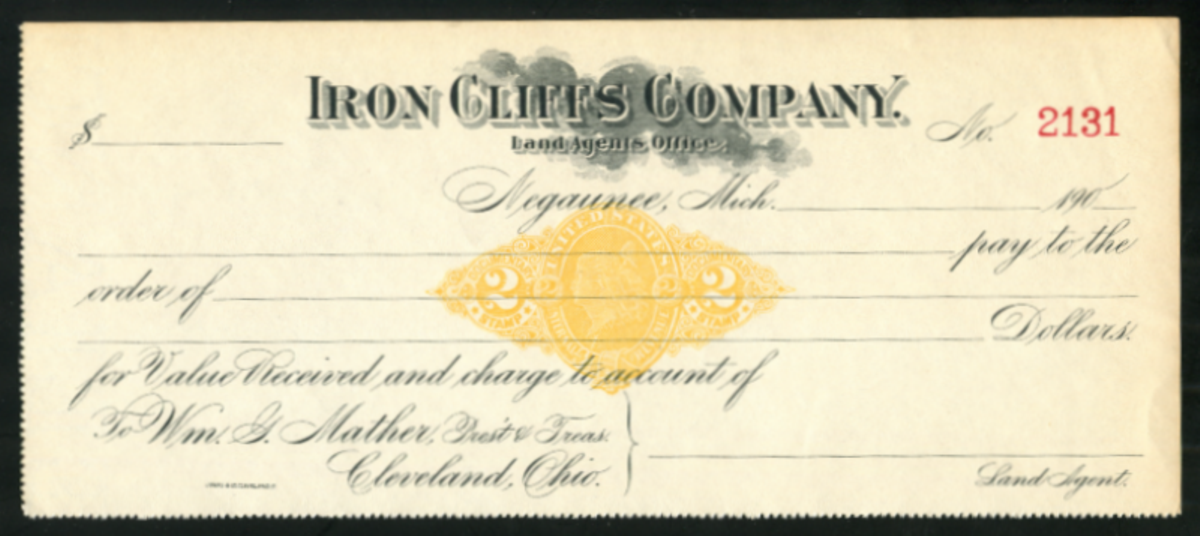 IRON CLIFFS COMPANY.
Land Agents Office,
$ No. 2131
Negaunee, Mich. 190
pay to the
order of
Dollars.
for Value Received and charge to account of
To Wm. G. Mather, Prest & Treas.
Cleveland, Ohio.
Land Agent.
UNITED STATES
2 2
STAMP STAMP